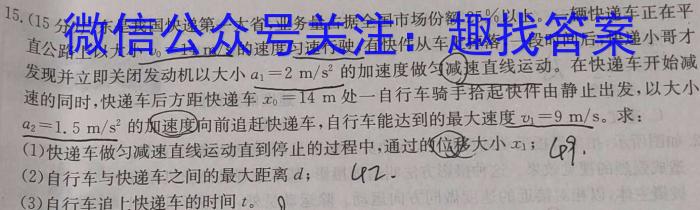 15.(15分)东是我国快递第一大省,业务量占据全国市场份额25%以上。一辆快递车正在平
直公路上以大小v₀=14 m/s的速度匀速行驶,有快件从车上掉落,一段时间后快递小哥才
微信公众号关注:趣找答案
发现并立即关闭发动机以大小 a₁=2 m/s² 的加速度做匀减速直线运动。在快递车开始减
速的同时,快递车后方距快递车 x₀=14 m 处一自行车骑手拾起快件由静止出发,以大小
a₂=1.5 m/s² 的加速度向前追赶快递车,自行车能达到的最大速度 v₁=9 m/s。求:
(1)快递车做匀减速直线运动直到停止的过程中,通过的位移大小 x₁; 49.
(2)自行车与快递车之间的最大距离 d; 42.
(3)自行车追上快递车的时间 t。